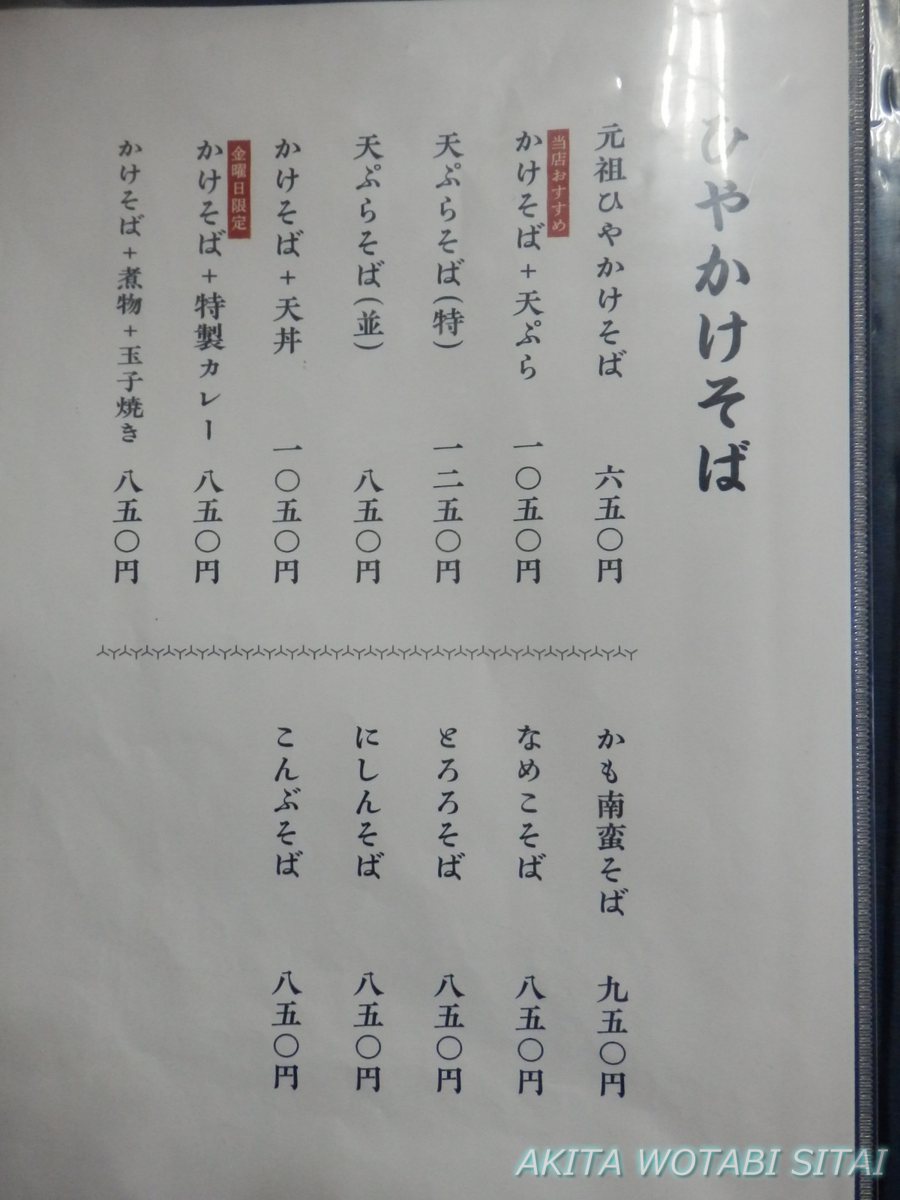 ひやかけそば
元祖ひやかけそば 六五〇円
当店おすすめ
かけそば+天ぷら 一〇五〇円
天ぷらそば(特) 一二五〇円
天ぷらそば(並) 八五〇円
かけそば+天丼 一〇五〇円
金曜日限定
かけそば+特製カレー 八五〇円
かけそば+煮物+玉子焼き 八五〇円
かも南蛮そば 九五〇円
なめこそば 八五〇円
とろろそば 八五〇円
にしんそば 八五〇円
こんぶそば 八五〇円
AKITA WOTABI SITAI